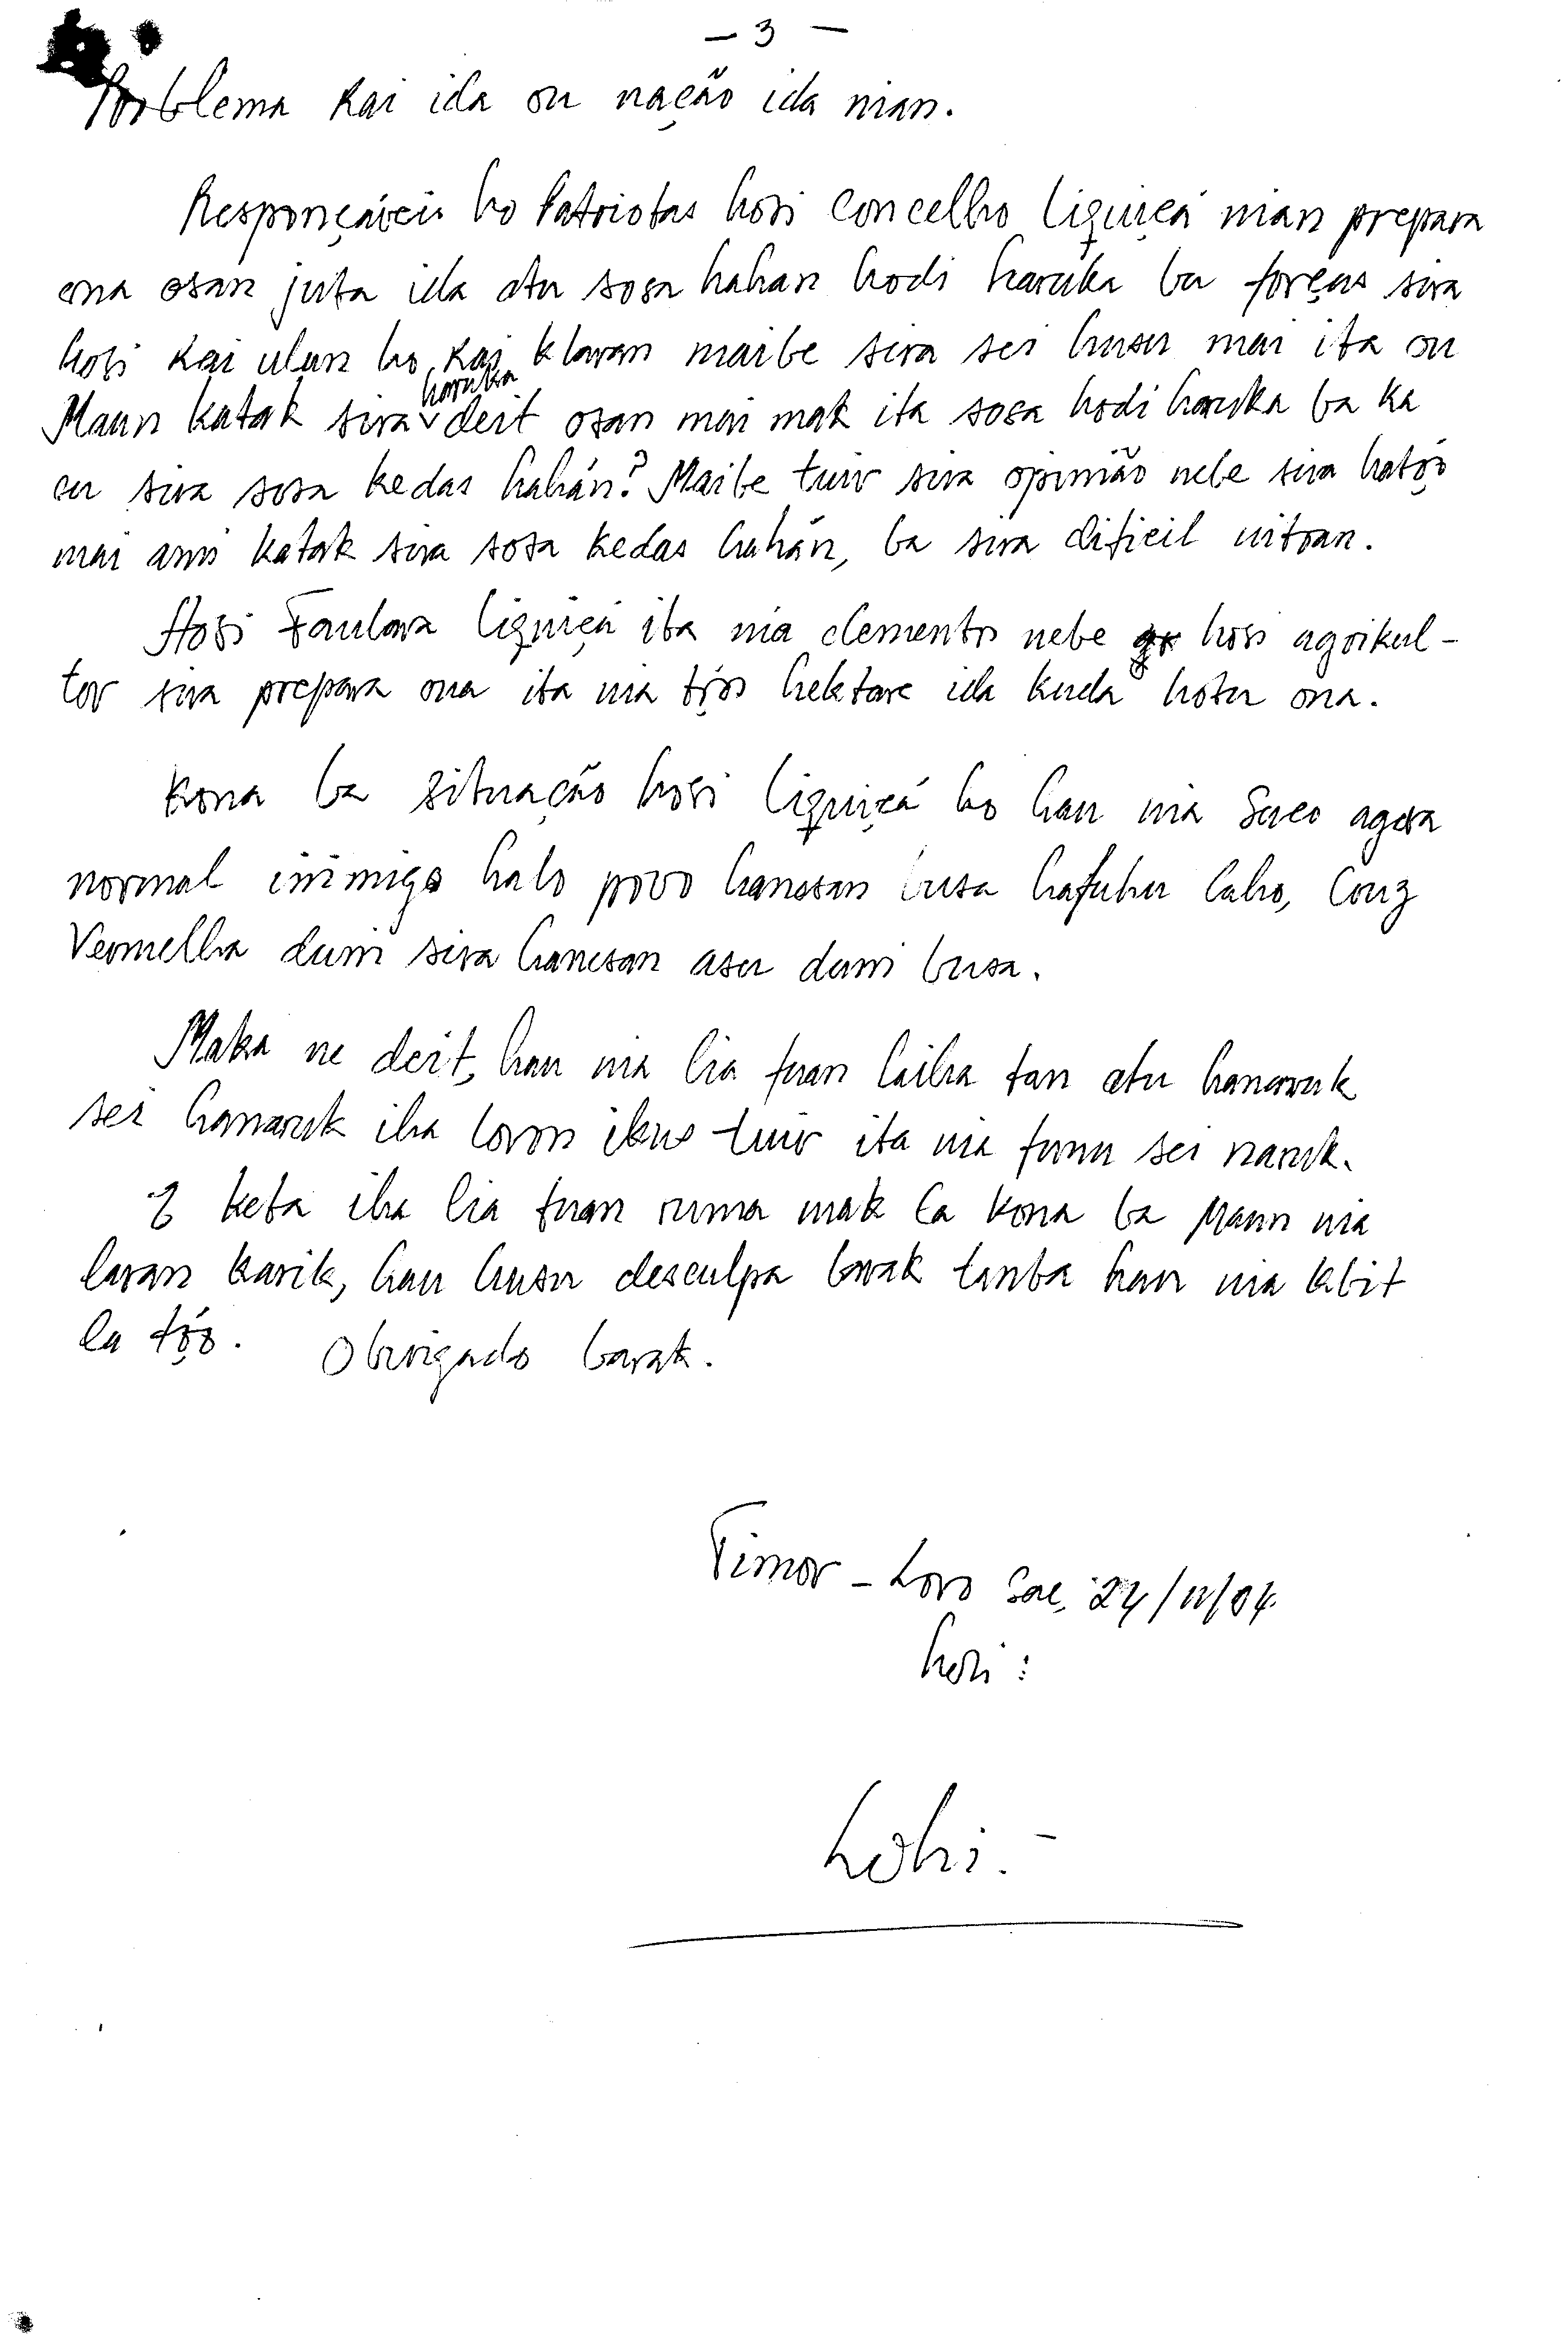 — 3 —
Problema kai ida ou nação ida nian.
Responçáveis ho Patriotas hosi Concelho Liquiçá nian prepara
ona osan juta ida atu sosa hahan hodi haruka ba forças sira
hosi kai ulun ho kai klaran maibe sira sei husu mai ita ou
Maun katak sira haruka deit osan mai mak ita sosa hodi haruka ba ka
ou sira sosa kedas hahán? Maibe tuir sira opinião nebe sira hatóo
mai ami katak sira sosa kedas hahán, ba sira dificil uitoan.
Hosi Faulara Liquiçá ita nia elementos nebe hosi agrikul-
tor sira prepara ona ita nia tóos hektare ida kuda hotu ona.
Kona ba situação hosi Liquiçá ho hau nia Suco agora
normal inimigo halo povo hanesan busa hafuhu laho, Cruz
Vermelha duni sira hanesan asu duni busa.
Maka ne deit, hau nia lia fuan laiha tan atu hanaruk
sei hanaruk iha loron ikus tuir ita nia funu sei naruk.
E keta iha lia fuan ruma mak la kona ba Maun nia
laran karik, hau husu desculpa barak tanba hau nia kbit
la tóo. Obrigado barak.
Timor - Loro Sae, 24/11/94.
hosi:
Lohi.-